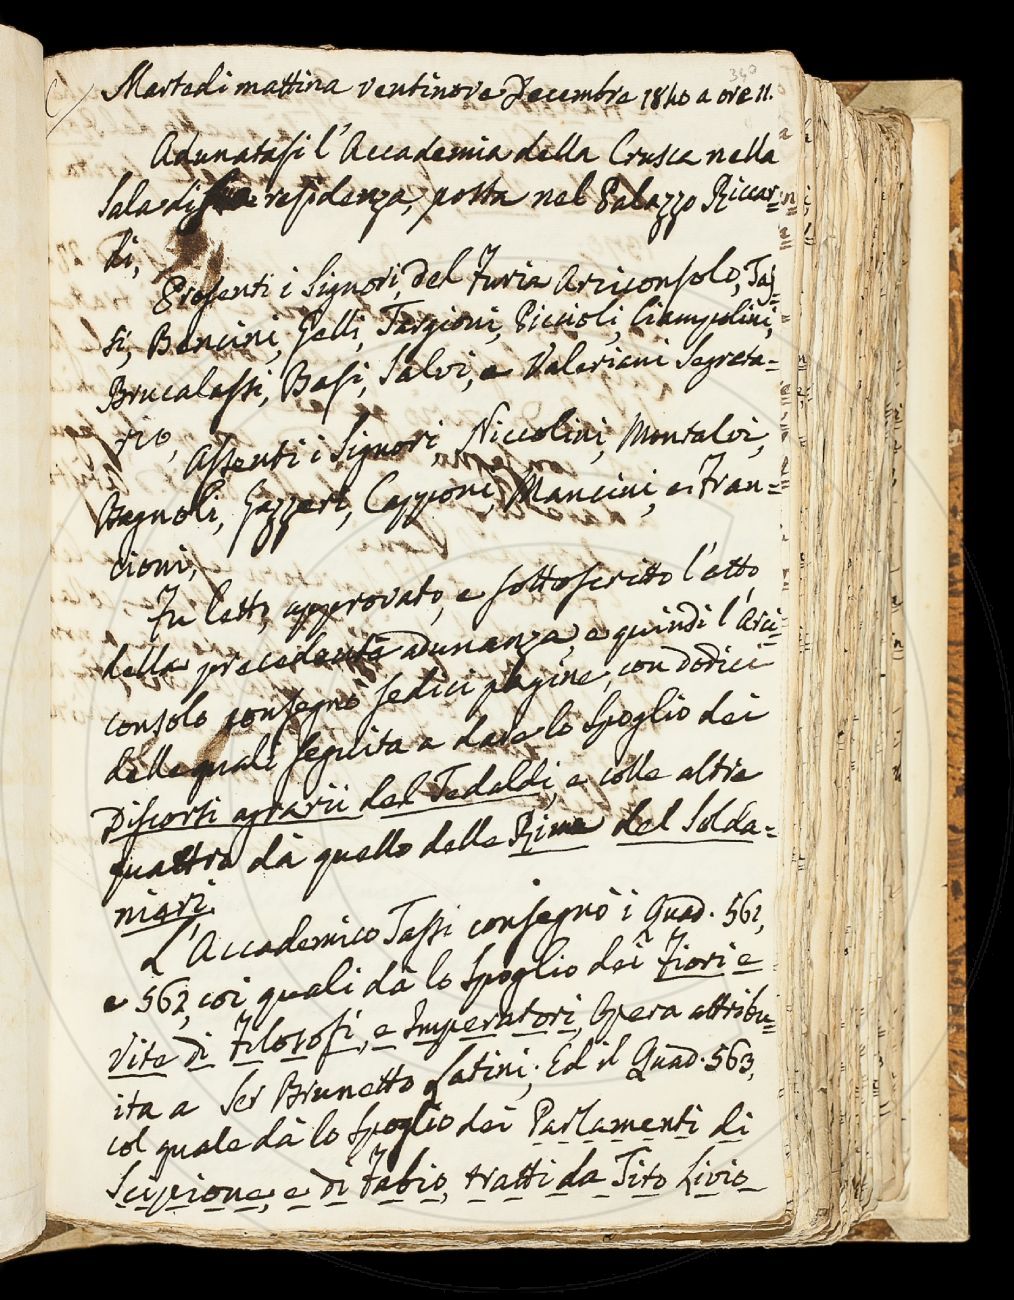 340
Martedì mattina ventinove Decembre 1840 a ore 11.
Adunatasi l'Accademia della Crusca nella
Sala di sua residenza, posta nel Palazzo Riccar=
di,
Presenti i Signori, del Furia Arciconsolo, Tas=
si, Bencini, Gelli, Targioni, Piccioli, Ciampolini,
Brucalassi, Basi, Salvi, e Valeriani Segreta=
rio,
Assenti i Signori, Niccolini, Montalvi,
Bagnoli, Gazzeri, Capponi, Mancini, e Fran=
cioni,
Fu letto, approvato, e sottoscritto l'atto
della precedente adunanza, e quindi l'Arci=
consolo consegnò sedici pagine, con dodici
delle quali seguita a dare lo Spoglio dei
Discorsi agrarii del Tedaldi, e colle altre
quattro dà quello delle Rime del Solda=
nieri.
L'Accademico Tassi consegnò i Quad. 561,
e 562, coi quali dà lo Spoglio dei Fiori e
Vite di Filosofi, e Imperatori, Opera attribu=
ita a Ser Brunetto Latini; Ed il Quad. 563,
col quale dà lo Spoglio dei Parlamenti di
Scipione, e di Fabio, tratti da Tito Livio